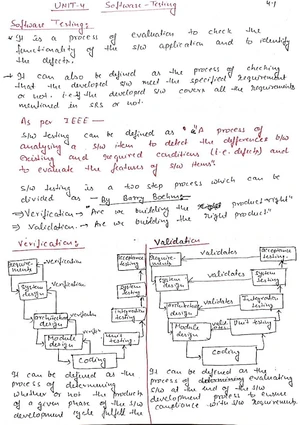 UNIT-4 Software-Testing
4.1
Software Testing:
* It is a process of evaluation to check the
functionality of the s/w application and to identify
the defects.
* It can also be defined as the process of checking
that the developed s/w meet the specified requirement
or not. i.e. if the developed s/w covers all the requirements
mentioned in SRS or not.
As per IEEE —
S/w testing can be defined as "A process of
analysing a s/w item to detect the differences b/w
existing and required conditions (i.e. defects) and
to evaluate the features of s/w items"
S/w testing is a two step process which can be
divided as - By Barry Boehm:
=> Verification -> "Are we building the product right"
=> Validation -> "Are we building the "right product"
Verification:
Validation
Require-
ments
verification
Acceptance
testing
System
design
verification
System
testing
Architectural
design
verification
Integration
testing
Module
design
Unit
testing
Coding
Require-
ments
validates
Acceptance
testing
System
design
validates
System
testing
Architectural
design
validates
Integration
testing
Module
design
Unit testing
Coding
It can be defined as the
process of determining
whether or not the products
of a given phase of the s/w
development cycle fulfill the
It can be defined as the
process of evaluating
s/w at the end of the s/w
development process to ensure
compliance with s/w requirements.